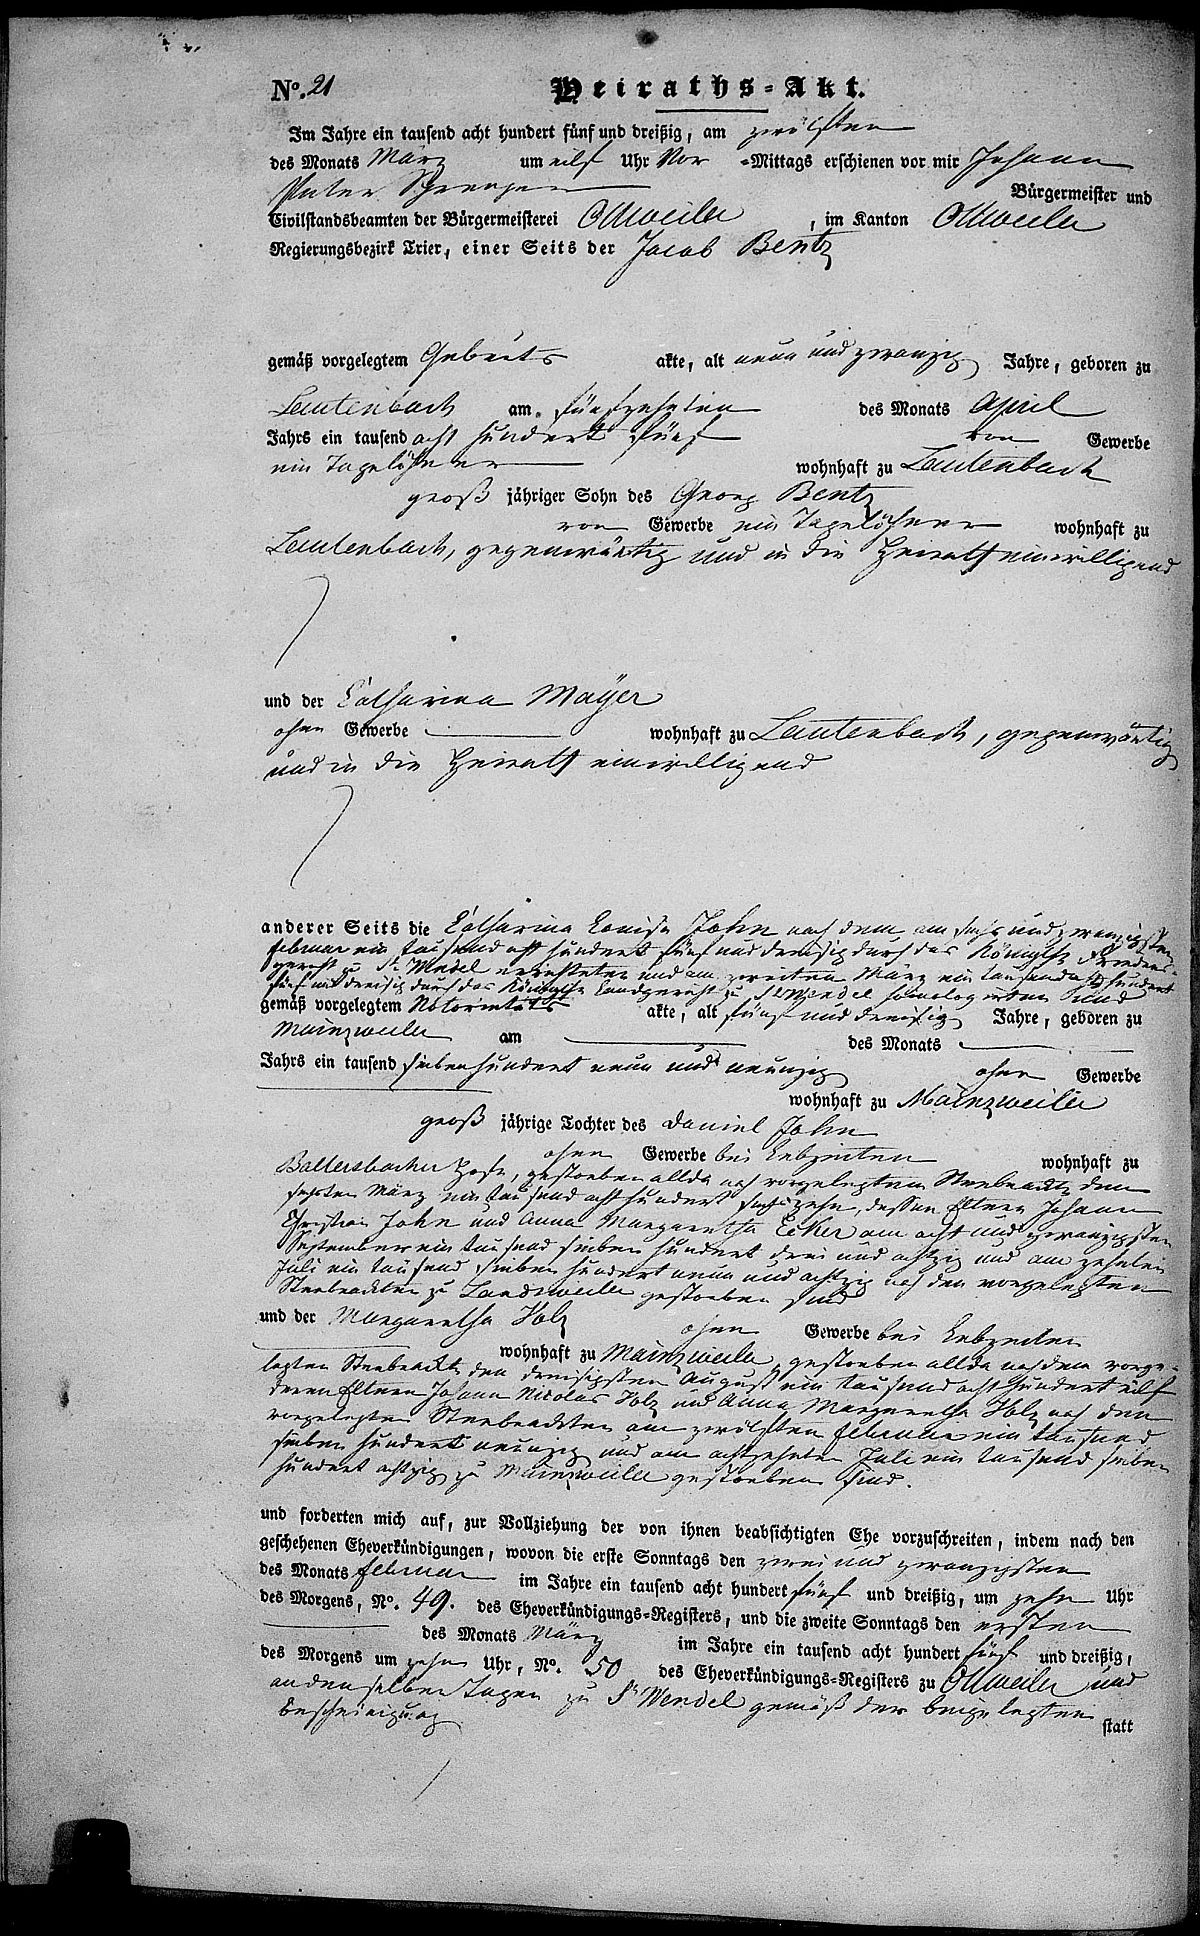 No. 21 Heiraths-Akt.
Im Jahre ein tausend acht hundert fünf und dreißig, am zwölften
des Monats März um eilf Uhr Vor -Mittags erschienen vor mir Johann
Peter Bürgermeister und
Civilstandsbeamten der Bürgermeisterei Ottweiler, im Kanton Ottweiler
Regierungsbezirk Trier, einer Seits der Jacob Bentz
gemäß vorgelegtem Geburts akte, alt neun und zwanzig Jahre, geboren zu
Lautenbach am fünfzehnten des Monats April
Jahrs ein tausend acht hundert fünf von Gewerbe
ein Tagelöhner wohnhaft zu Lautenbach
groß jähriger Sohn des Georg Bentz
von Gewerbe ein Tagelöhner wohnhaft zu
Lautenbach, gegenwärtig und in die Heirath einwilligend
und der Catharina Mayer
ohne Gewerbe wohnhaft zu Lautenbach, gegenwärtig
und in die Heirath einwilligend
anderer Seits die Catharina Louisa John nach dem am sechs und zwanzigsten
Februar ein tausend acht hundert fünf und dreisig durch das Königliche Friedens-
gericht zu St. Wendel errichteten und am zweiten März ein tausend acht hundert
fünf und dreisig durch das Königliche Landgericht zu St Wendel homologirten
gemäß vorgelegtem Notorietäts akte, alt fünf und dreisig Jahre, geboren zu
Mainzweiler am des Monats
Jahrs ein tausend siebenhundert neun und neunzig ohne Gewerbe
wohnhaft zu Mainzweiler
groß jährige Tochter des Daniel John
ohne Gewerbe bei Lebzeiten wohnhaft zu
Ballersbacher Hofe, gestorben allda nach vorgelegtem Sterbeakte den
sechsten März ein tausend acht hundert sechszehn, dessen Eltern Johann
Christian John und Anna Margaretha Ecker am acht und zwanzigsten
September ein tausend sieben hundert drei und achtzig und am zehnten
Juli ein tausend sieben hundert neun und achtzig nach den vorgelegten
Sterbeakten zu Landsweiler gestorben sind
und der Margaretha Volz ohne Gewerbe bei Lebzeiten
wohnhaft zu Mainzweiler, gestorben allda nach dem vorge-
legten Sterbeakte den dreisigsten August ein tausend acht hundert eilf
deren Eltern Johann Nicolas Volz und Anna Margaretha Volz nach den
vorgelegten Sterbeakten am zwölften Februar ein tausend
sieben hundert neunzig und am achtzehnten Juli ein tausend sieben
hundert achtzig zu Mainzweiler gestorben sind.
und forderten mich auf, zur Vollziehung der von ihnen beabsichtigten Ehe vorzuschreiten, indem nach den
geschehenen Eheverkündigungen, wovon die erste Sonntags den zwei und zwanzigsten
des Monats Februar im Jahre ein tausend acht hundert fünf und dreißig, um zehn Uhr
des Morgens, No. 49. des Eheverkündigungs-Registers, und die zweite Sonntags den ersten
des Monats März im Jahre ein tausend acht hundert fünf und dreißig,
des Morgens um zehn Uhr, No. 50 des Eheverkündigungs-Registers zu Ottweiler und
an denselben Tagen zu St Wendel gemäß der beigelegten
Bescheinigung statt